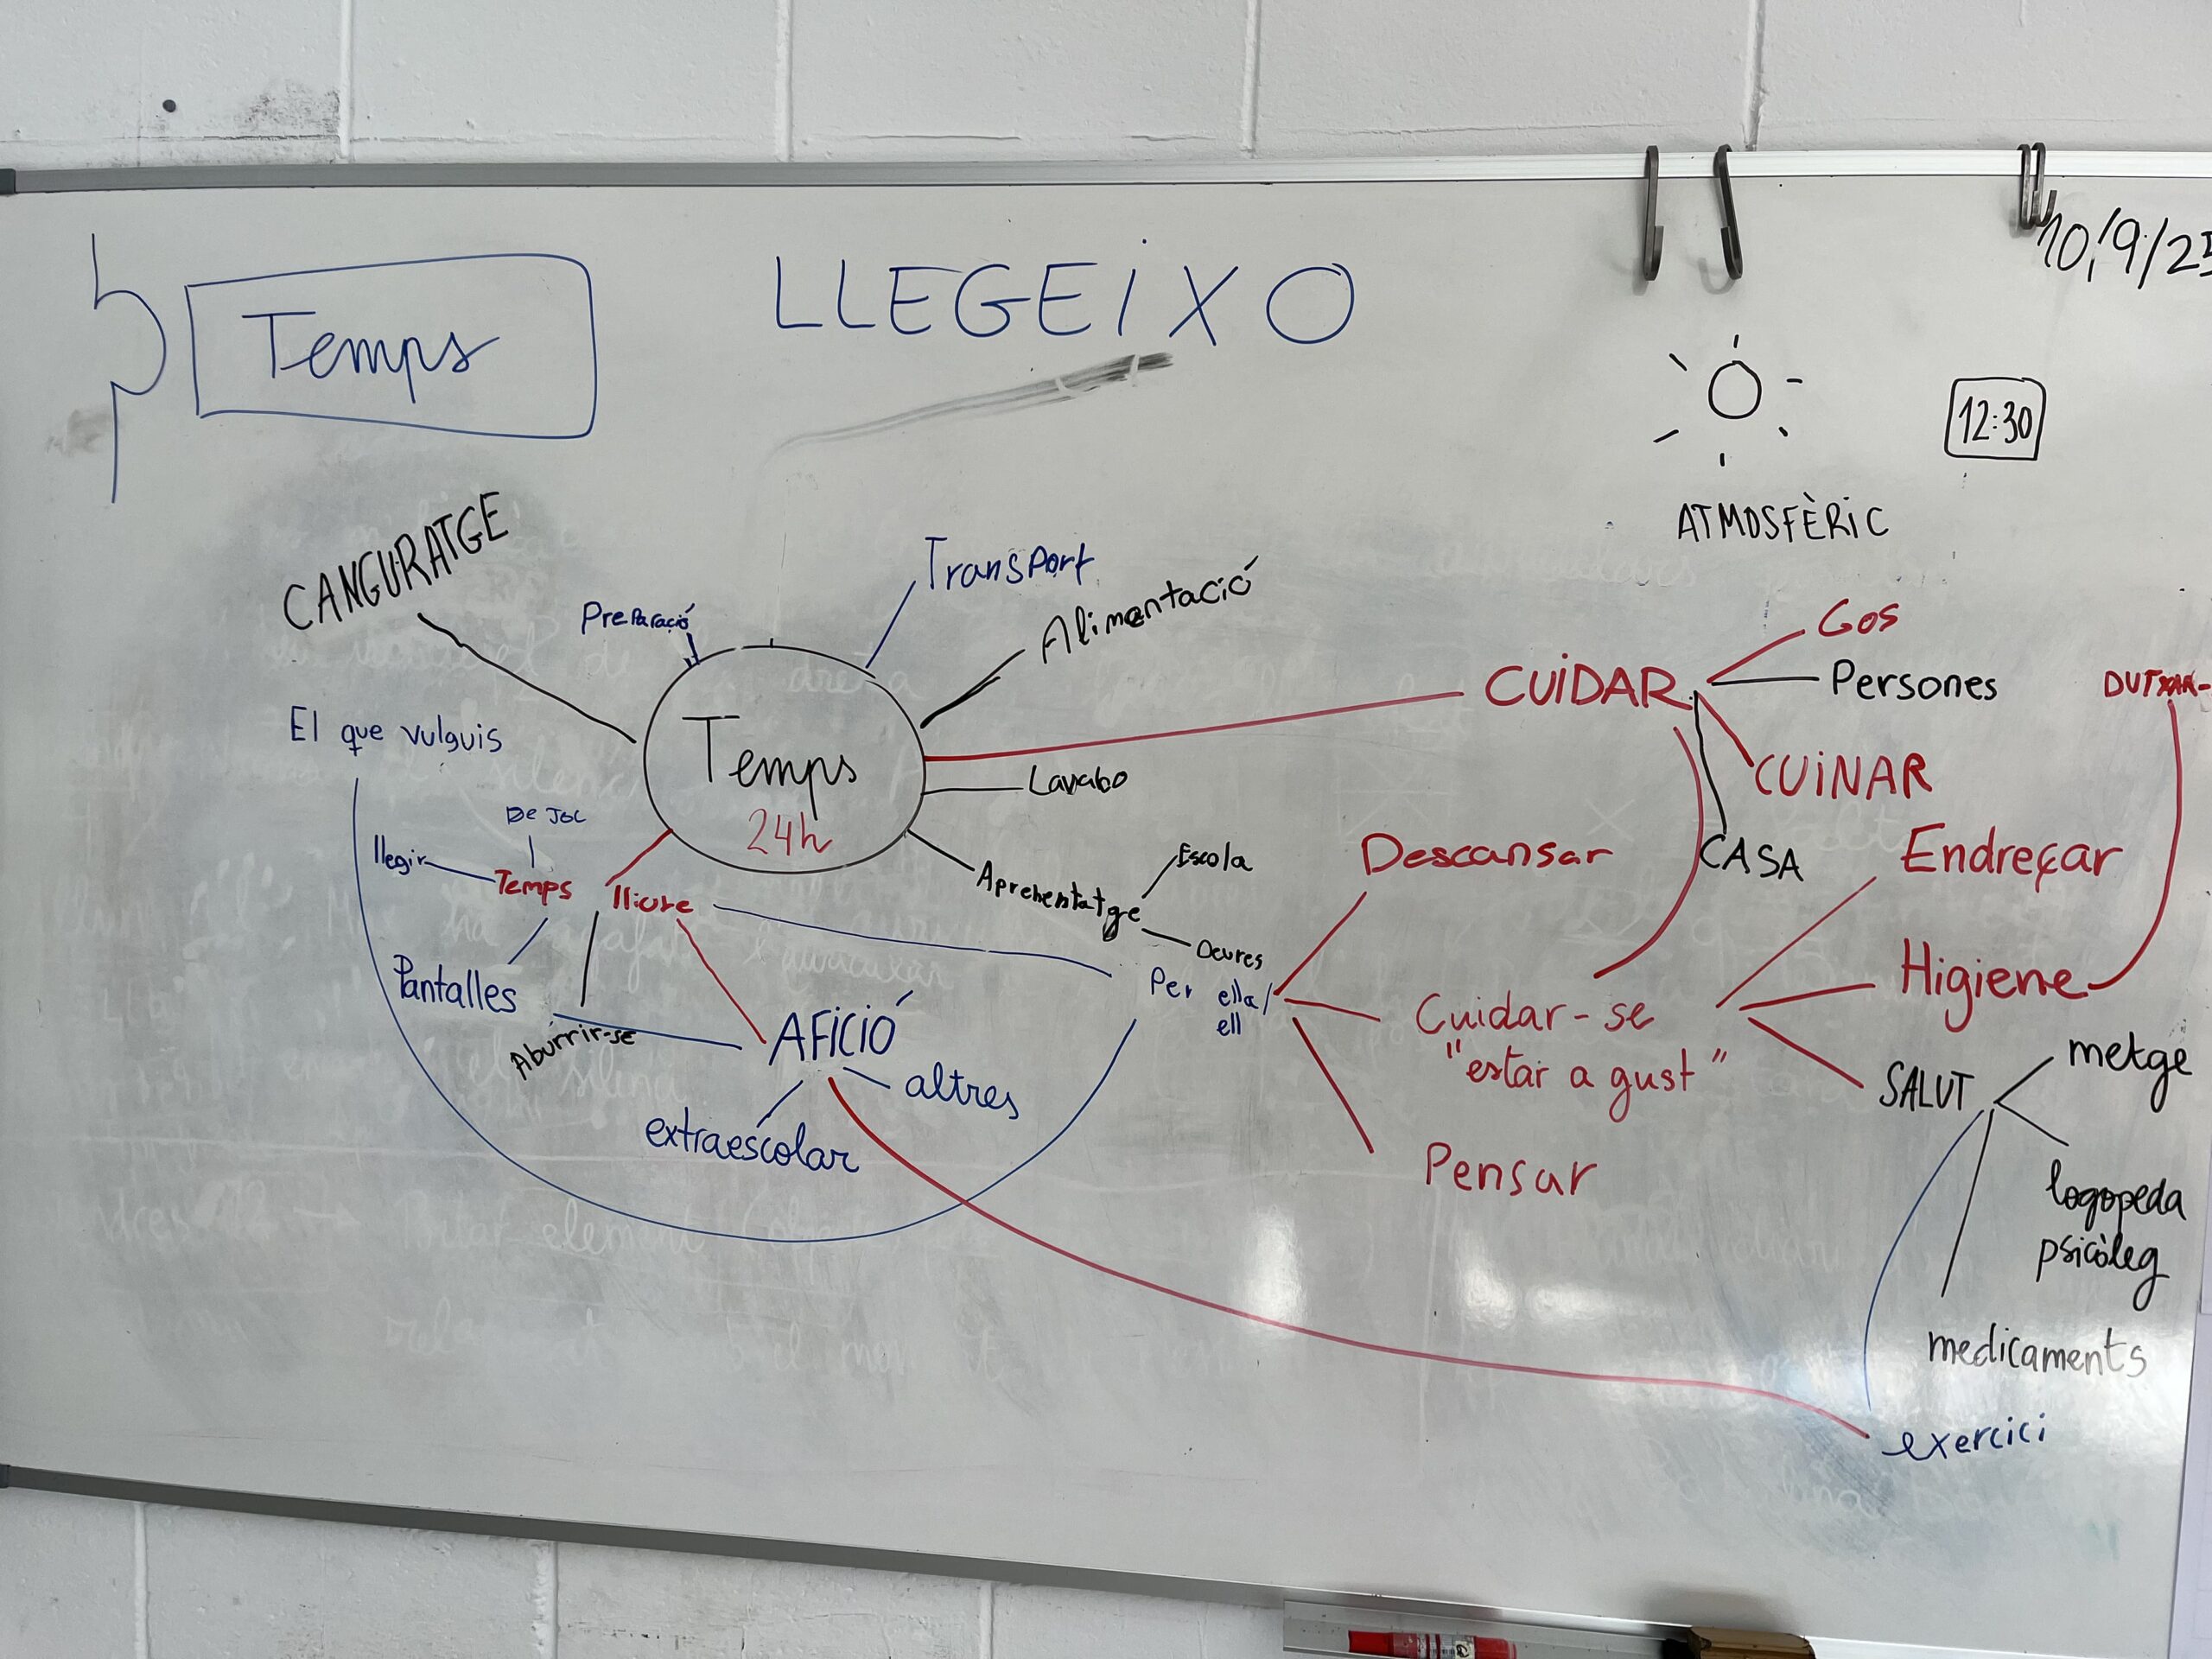 Temps
LLEGEIXO
10/9/25
12:30
ATMOSFÈRIC
CANGURATGE
Preparació
Transport
Alimentació
El que vulguis
Temps
24h
Lavabo
CUIDAR
Gos
Persones
CUINAR
CASA
DUTXAR-
De Joc
llegir
Temps lliure
Aprenentatge
Escola
Deures
Pantalles
Aburrir-se
AFICIÓ
altres
extraescolar
Per ella/
ell
Descansar
Cuidar-se
"estar a gust"
Pensar
Endreçar
Higiene
SALUT
metge
logopeda
psicòleg
medicaments
exercici